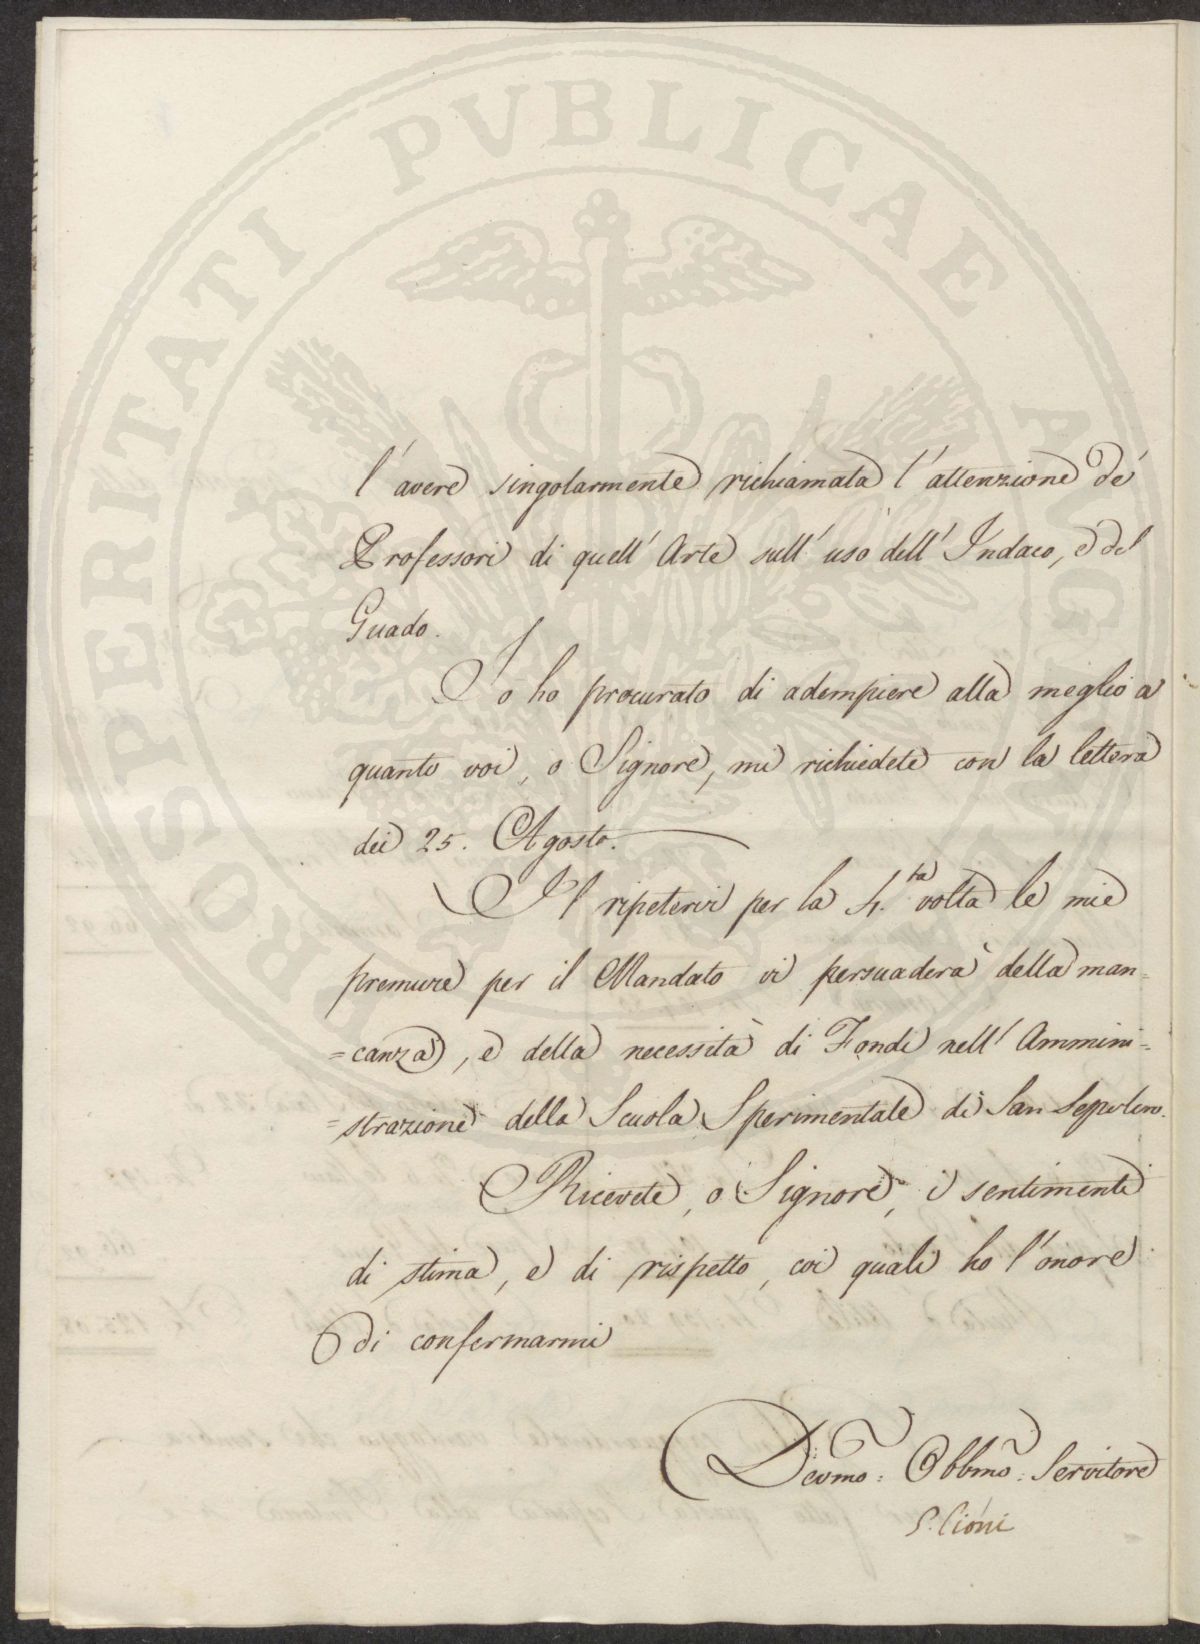 PROSPERITATI PUBLICAE AUGENDAE
l'avere singolarmente richiamata l'attenzione de'
Professori di quell'Arte sull'uso dell'Indaco, e del
Guado.
Io ho procurato di adempiere alla meglio a
quanto voi, o Signore, mi richiedete con la lettera
dei 25. Agosto.
Il ripetervi per la 4.ta volta le mie
premure per il Mandato vi persuaderà della man=
=canza, e della necessità di Fondi nell'Ammini=
=strazione della Scuola Sperimentale di San Sepolcro.
Ricevete, o Signore, i sentimenti
di stima, e di rispetto, coi quali ho l'onore
di confermarmi
Devmo: Obbmo: Servitore
G. Cioni